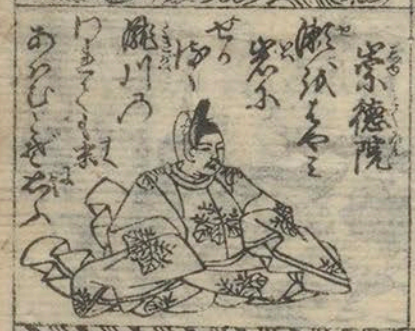 崇徳院
瀬をはやみ
岩に
せか
るゝ
瀧川の
われても末に
あはむとぞおもふ